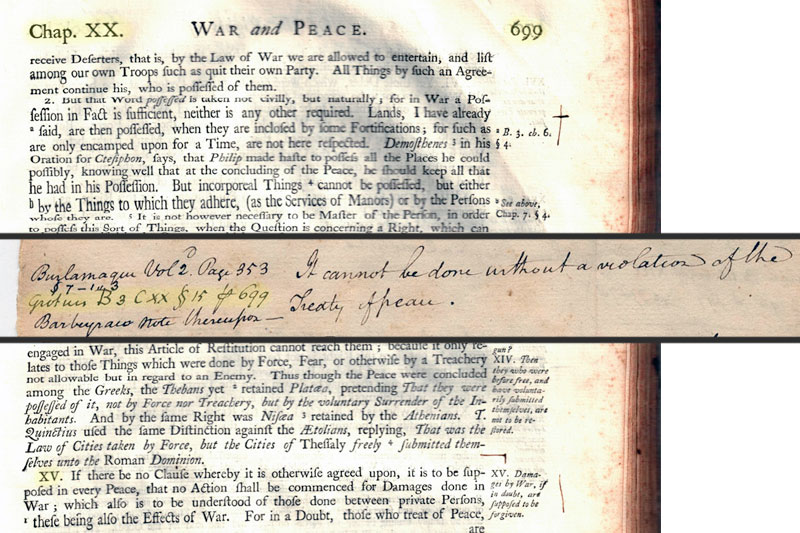 Chap. XX. WAR and PEACE. 699
receive Deserters, that is, by the Law of War we are allowed to entertain, and list
among our own Troops such as quit their own Party. All Things by such an Agree-
ment continue his, who is possessed of them.
2. But that Word possessed is taken not civilly, but naturally; for in War a Pos-
session in Fact is sufficient, neither is any other required. Lands, I have already
ª said, are then possessed, when they are inclosed by some Fortifications; for such as
are only encamped upon for a Time, are not here respected. Demosthenes ³ in his
Oration for Ctesiphon, says, that Philip made haste to possess all the Places he could
possibly, knowing well that at the concluding of the Peace, he should keep all that
he had in his Possession. But incorporeal Things ⁴ cannot be possessed, but either
ᵇ by the Things to which they adhere, (as the Services of Manors) or by the Persons
whose they are. ⁵ It is not however necessary to be Master of the Person, in order
to possess this Sort of Things, when the Question is concerning a Right, which can
ª B. 3. ch. 6.
§ 4.
ᵇ See above,
Chap. 7. § 4.
Burlamaqui Vol 2. Page 353 It cannot be done without a violation of the
Grotius B 3 C XX § 15 p 699 Treaty of peace.
Barbeyracs Note thereupon —
engaged in War, this Article of Restitution cannot reach them; because it only re-
lates to those Things which were done by Force, Fear, or otherwise by a Treachery
not allowable but in regard to an Enemy. Thus though the Peace were concluded
among the Greeks, the Thebans yet ² retained Platæa, pretending That they were
possessed of it, not by Force nor Treachery, but by the voluntary Surrender of the In-
habitants. And by the same Right was Nisæa ³ retained by the Athenians. T.
Quinctius used the same Distinction against the Ætolians, replying, That was the
Law of Cities taken by Force, but the Cities of Thessaly freely ⁴ submitted them-
selves unto the Roman Dominion.
gun?
XIV. Then
they who were
before free, and
have volunta-
rily submitted
themselves, are
not to be re-
stored.
XV. If there be no Clause whereby it is otherwise agreed upon, it is to be sup-
posed in every Peace, that no Action shall be commenced for Damages done in
War; which also is to be understood of those done between private Persons,
¹ these being also the Effects of War. For in a Doubt, those who treat of Peace,
are
XV. Dama-
ges by War, if
in doubt, are
supposed to be
forgiven.